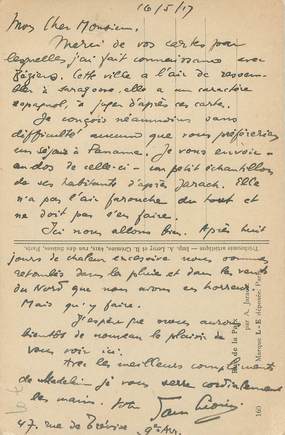 16/5/17
Mon Cher Monsieur.
Merci de vos cartes par
lesquelles j'ai fait connaissance avec
Béziers. Cette ville a l'air de ressem-
bler à Saragosse, elle a un caractère
espagnol, à juger d'après ces cartes.
Je conçois néanmoins sans
difficulté aucune que vous préfériez
un séjour à Paname. Je vous envoie -
au dos de celle-ci - un petit échantillon
de ses habitants d'après Jarach. Elle
n'a pas l'air farouche du tout et
ne doit pas s'en faire.
Ici nous allons bien. Après huit
jours de chaleur excessive nous sommes
retombés dans la pluie et dans les vents
du Nord que nous avons en horreur.
Mais qu'y faire.
J'espère que nous aurons
bientôt de nouveau le plaisir de
vous voir ici.
Avec les meilleurs compliments
de Madelin je vous serre cordialement
les mains.
47. rue de Trévise, 9e Arr.
de la Paix
par A. Jarach
Marque L-E déposée, Paris
160